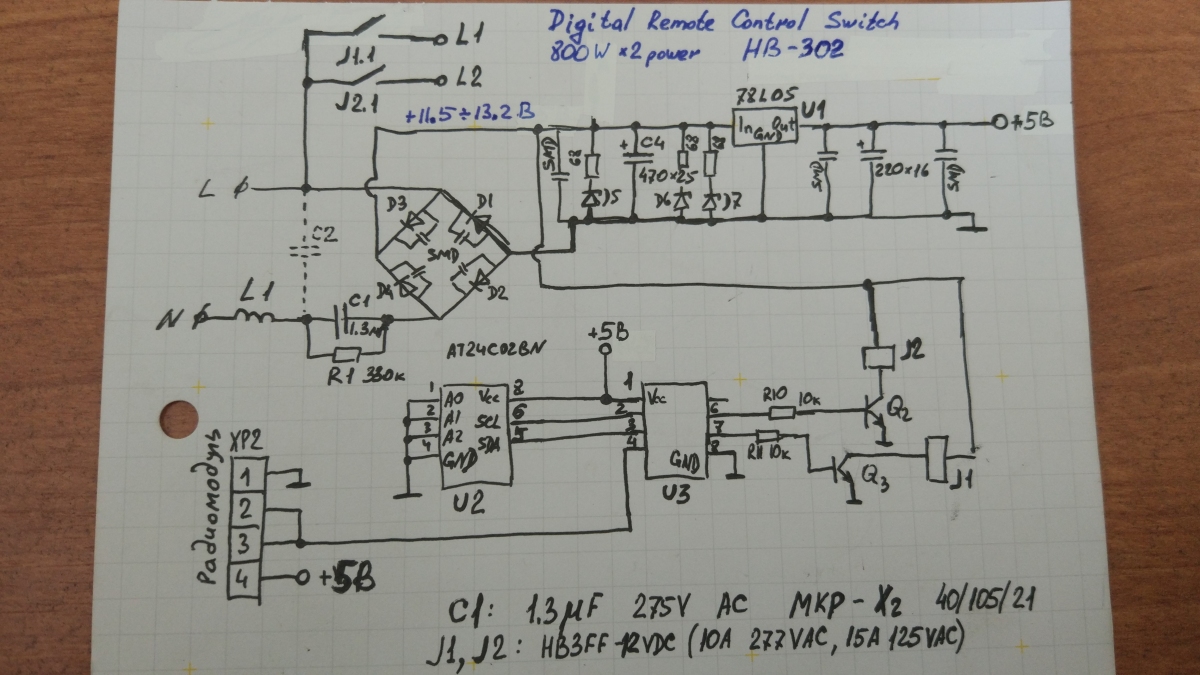 Digital Remote Control Switch
800W×2 power HB-302
L1
J1.1
L2
J2.1
+11.5÷13.2В
78L05
U1
In GND Out
+5В
SMD
68
C4
470×25
68
68
D5
D6
D7
SMD
220×16
SMD
L
C2
D3
D1
SMD
D4
D2
N
L1
C1
1.3м
R1 330к
AT24C02BN
+5В
1 A0 Vcc 8
2 A1 SCL 6
3 A2 SDA 5
4 GND
U2
1 Vcc
2
3
4
6
7
GND 8
U3
R10 10к
R11 10к
Q2
J2
Q3
J1
Радиомодуль
XP2
1
2
3
4
+5В
C1: 1.3μF 275V AC MKP-X2 40/105/21
J1, J2: HB3FF-12VDC (10A 277VAC, 15A 125VAC)